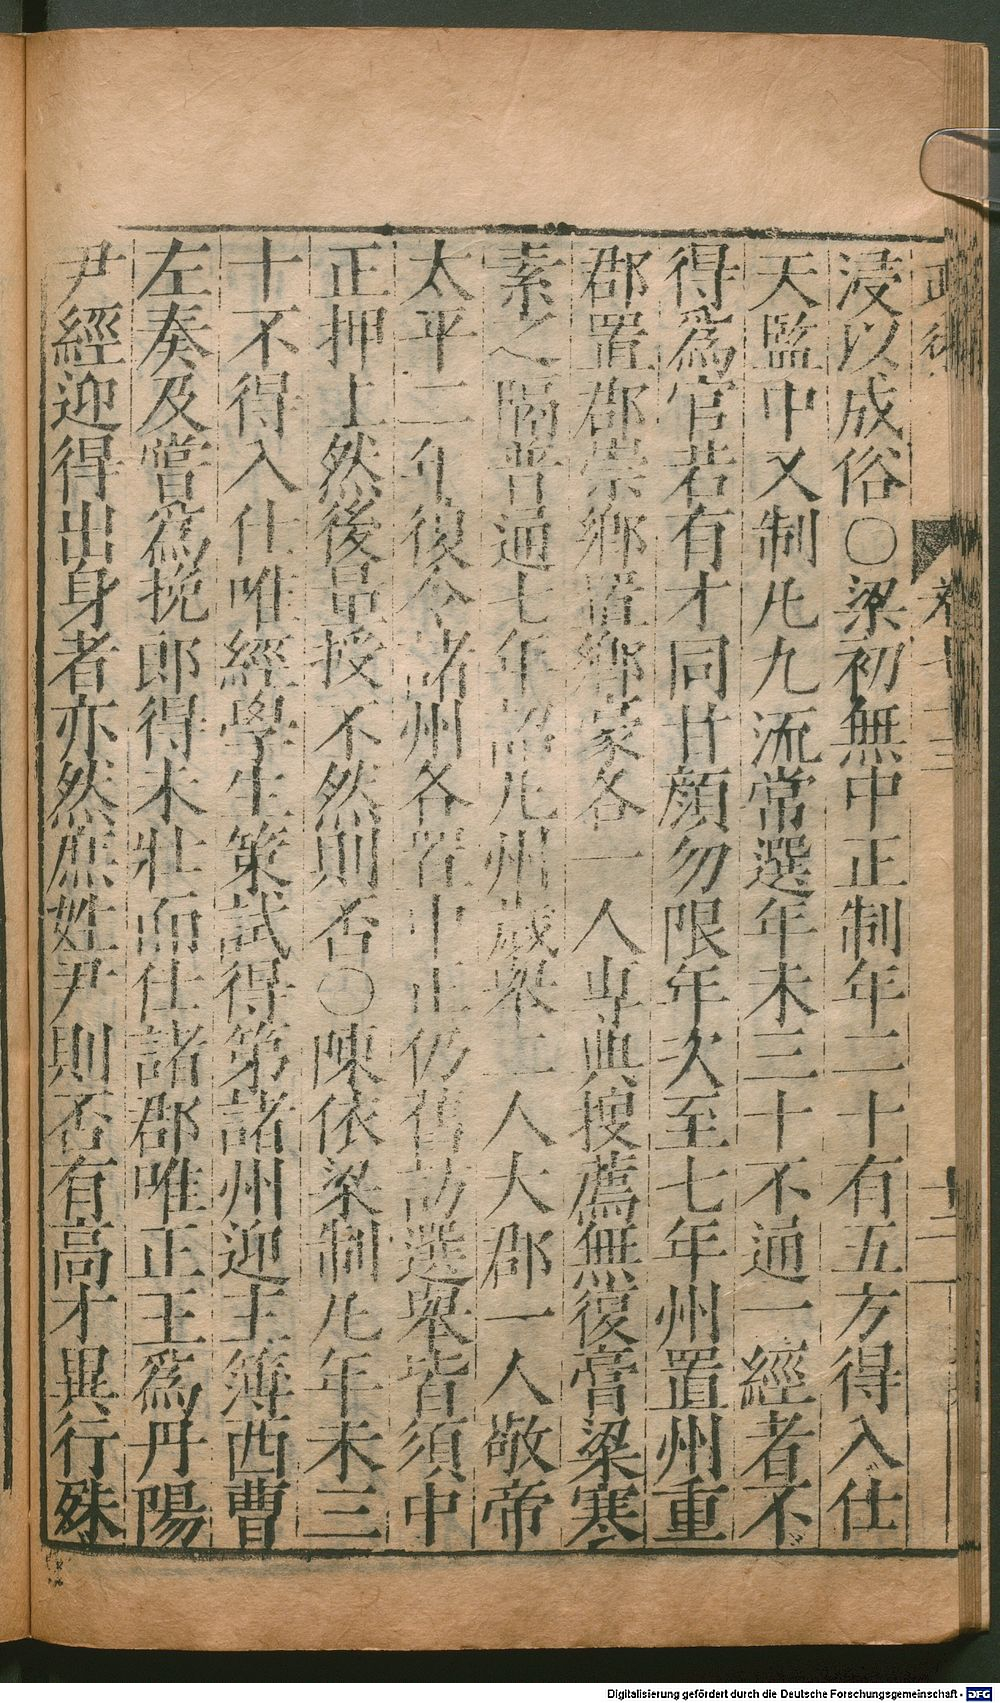 浸以成俗○梁初無中正制年二十有五方得入仕
天監中又制凡九流常選年未三十不通一經者不
得爲官若有才同甘顔勿限年次至七年州置州重
郡置郡崇鄉置鄉豪各一人專典搜薦無復膏粱寒
素之隔普通七年詔凡州歲舉二人大郡一人敬帝
太平二年復令諸州各置中正仍舊訪選舉皆須中
正押上然後量授不然則否○陳依梁制凡年未三
十不得入仕唯經學生策試得第諸州迎主簿西曹
左奏及嘗爲挽郎得未壯而仕諸郡唯正王爲丹陽
尹經迎得出身者亦然庶姓尹則否有高才異行殊
十二
Digitalisierung gefördert durch die Deutsche Forschungsgemeinschaft - DFG